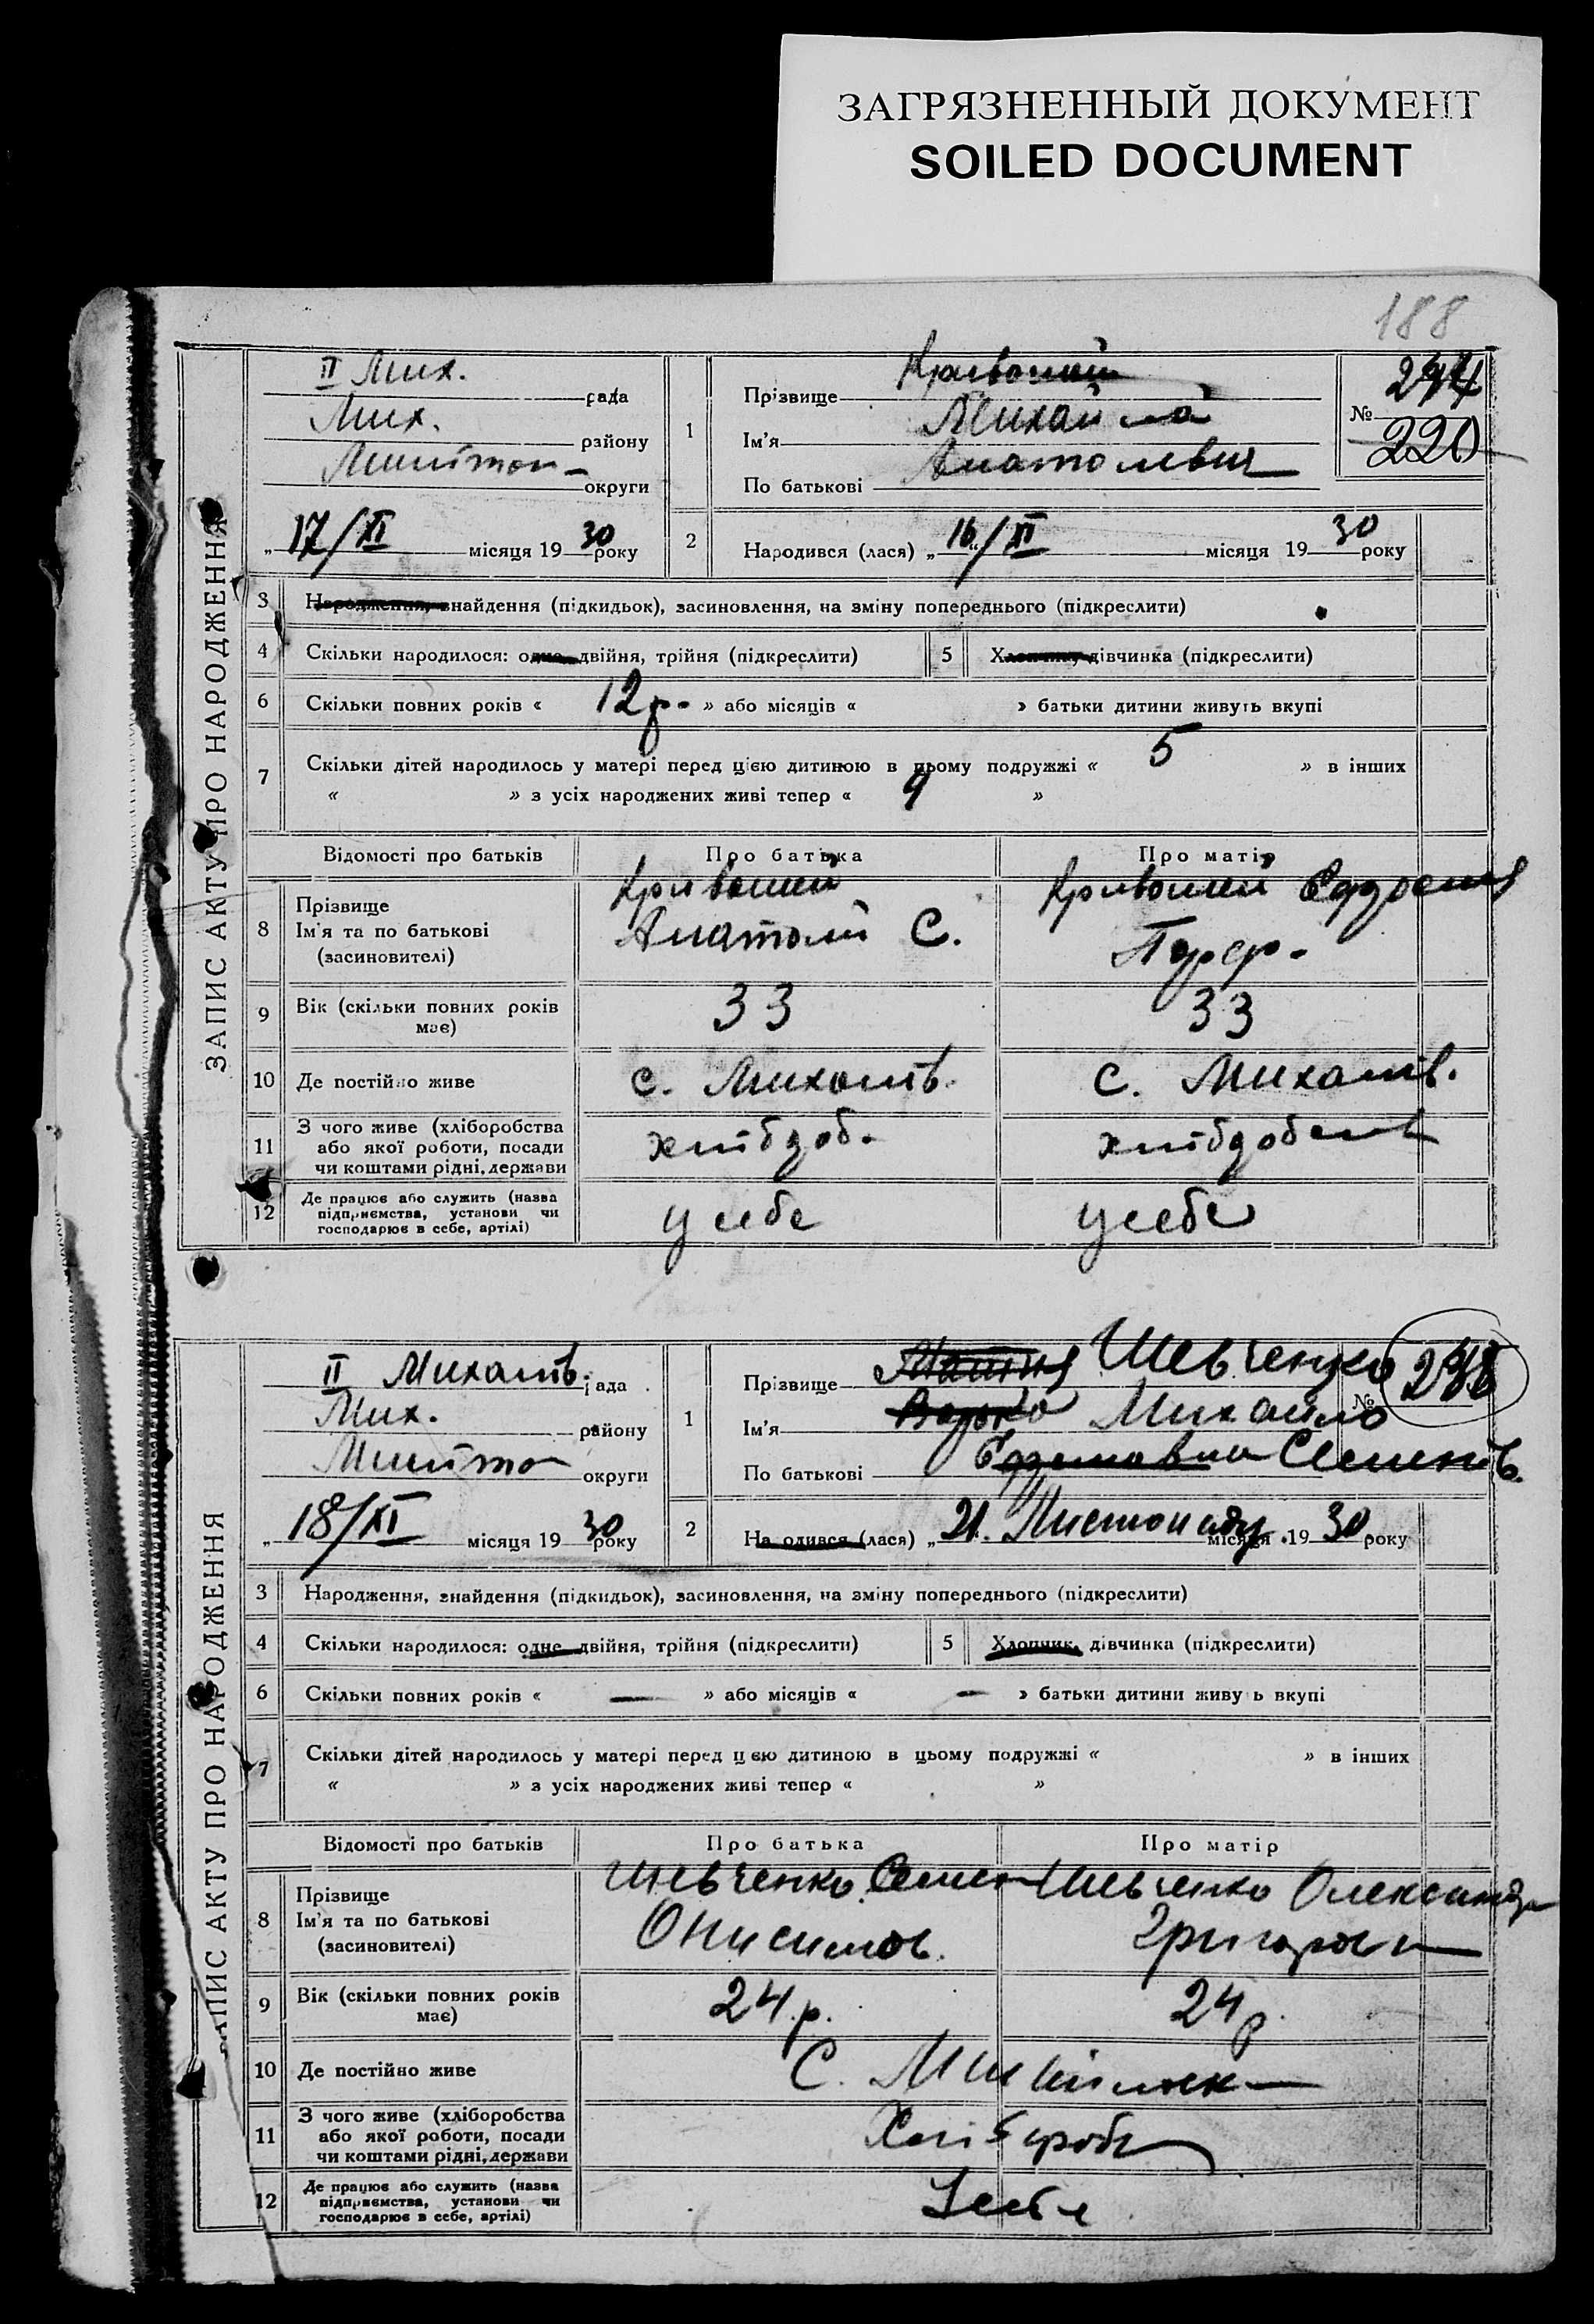 ЗАГРЯЗНЕННЫЙ ДОКУМЕНТ
SOILED DOCUMENT
188
ЗАПИС АКТУ ПРО НАРОДЖЕННЯ
II Мих. рада
Мих. району
округи
„ 17/XI місяця 19 30 року
1
Прізвище
Ім'я Михайло
По батькові
№
220
2
Народився (лася) „ 16 “/XI місяця 19 30 року
3 Народження, знайдення (підкидьок), засиновлення, на зміну попереднього (підкреслити)
4 Скільки народилося: одне двійня, трійня (підкреслити) 5 Хлопчик, дівчинка (підкреслити)
6 Скільки повних років « 12 р. » або місяців « » батьки дитини живуть вкупі
7 Скільки дітей народилось у матері перед цією дитиною в цьому подружжі « 5 » в інших
« » з усіх народжених живі тепер « »
Відомості про батьків Про батька Про матір
8
Прізвище
Ім'я та по батькові
(засновителі)
Анатолій С.
9 Вік (скільки повних років має) 33 33
10 Де постійно живе с. Михайлів. с. Михайлів.
11 З чого живе (хліборобства
або якої роботи, посади
чи коштами рідні, держави
12 Де працює або служить (назва
підприємства, установи чи
господарює в себе, артілі)
у себе у себе
ЗАПИС АКТУ ПРО НАРОДЖЕННЯ
II Михайлів. рада
Мих. району
округи
„ 18/XI місяця 19 30 року
1
Прізвище Шевченко
Ім'я Михайло
По батькові Семенів.
№
2
Народився (лася) „ 21. Листопаду місяця 19 30 року
3 Народження, знайдення (підкидьок), засиновлення, на зміну попереднього (підкреслити)
4 Скільки народилося: одне двійня, трійня (підкреслити) 5 Хлопчик, дівчинка (підкреслити)
6 Скільки повних років « — » або місяців « — » батьки дитини живуь вкупі
7 Скільки дітей народилось у матері перед цією дитиною в цьому подружжі « » в інших
« » з усіх народжених живі тепер « »
Відомості про батьків Про батька Про матір
8
Прізвище
Ім'я та по батькові
(засиновителі)
Шевченко Семен Шевченко Олександр
Онисимов.
9 Вік (скільки повних років має) 24 р. 24 р.
10 Де постійно живе С.
11 З чого живе (хліборобства
або якої роботи, посади
чи коштами рідні, держави
12 Де працює або служить (назва
підприємства, установи чи
господарює в себе, артілі)